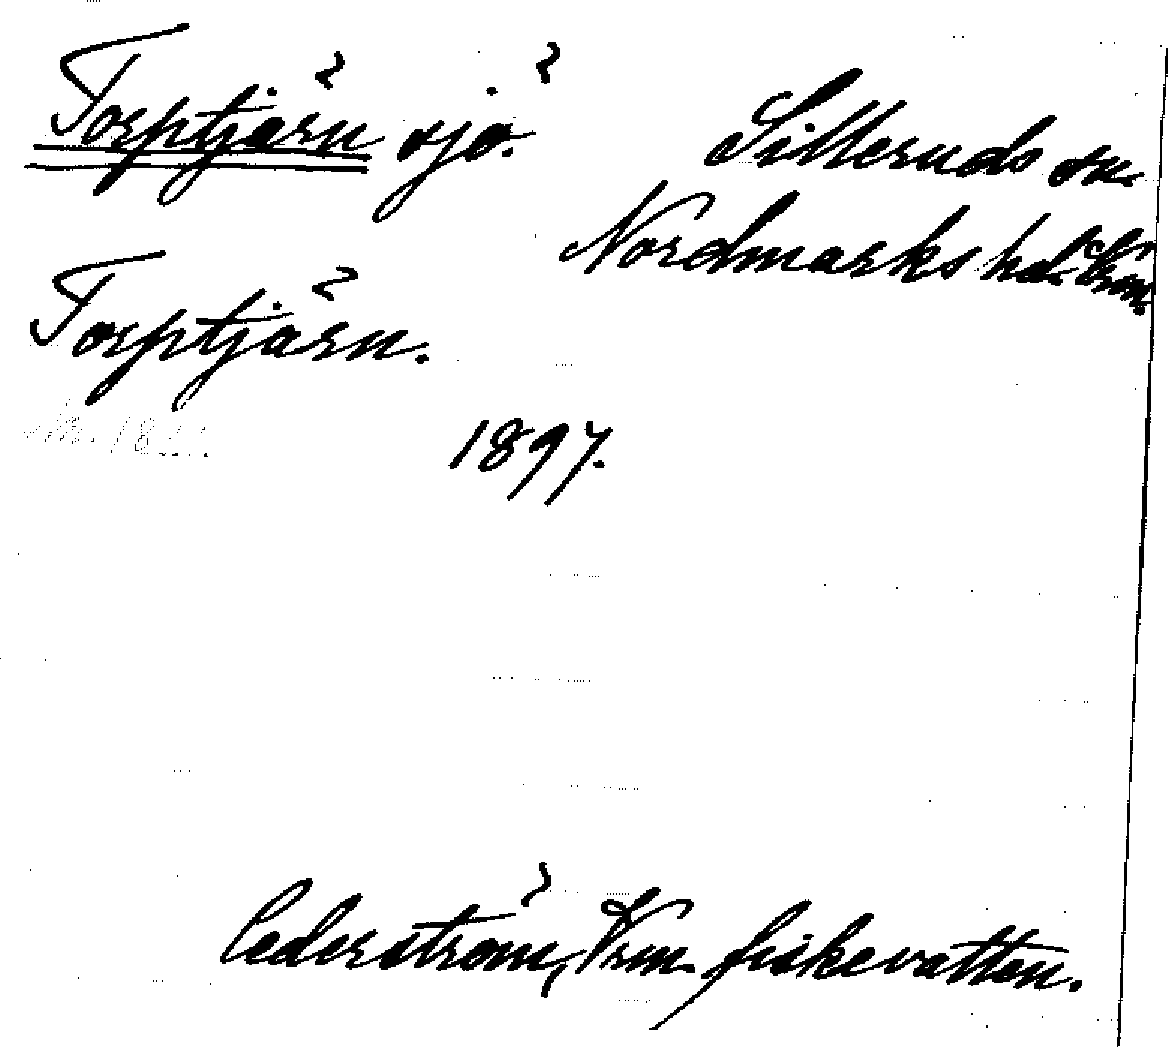 Torptjärn sjö.
Silleruds sn.
Nordmarks hd. Vrm.
Torptjärn.
1897.
Cederström, Vrm. fiskevatten.